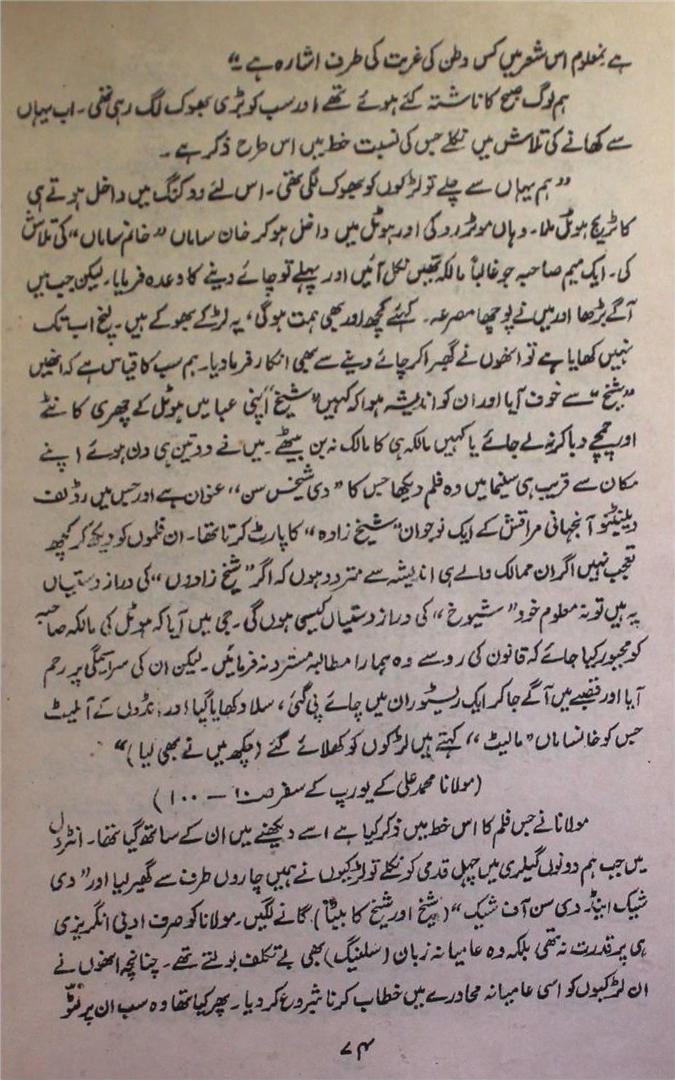 ہے نہ معلوم اس شعر میں کس وطن کی غربت کی طرف اشارہ ہے۔"
ہم لوگ صبح کا ناشتہ کئے ہوئے تھے اور سب کو بڑی بھوک لگ رہی تھی۔ اب یہاں
سے کھانے کی تلاش میں نکلے جس کی نسبت خط میں اس طرح ذکر ہے۔
"ہم یہاں سے چلے تو لڑکوں کو بھوک لگی تھی۔ اس لئے ووکنگ میں داخل ہوتے ہی
کاٹریج ہوٹل ملا۔ وہاں موٹر روکی اور ہوٹل میں داخل ہو کر خان ساماں "خانم ساماں" کی تلاش
کی۔ ایک میم صاحبہ جو غالباً مالکہ تھیں نکل آئیں اور پہلے تو چائے دینے کا وعدہ فرمایا۔ لیکن جب میں
آگے بڑھا اور میں نے پوچھا مصرعہ۔ کہئے کچھ اور بھی ہمت ہوگی، یہ لڑکے بھوکے ہیں۔ لنچ اب تک
نہیں کھایا ہے تو انھوں نے گھبرا کر چائے دینے سے بھی انکار فرما دیا۔ ہم سب کا قیاس ہے کہ انھیں
"شیخ" سے خوف آیا اور ان کو اندیشہ ہوا کہ کہیں "شیخ" اپنی عبا میں ہوٹل کے چھری کانٹے
اور چمچے دبا کر نہ لے جائے یا کہیں مالکہ ہی کا مالک نہ بن بیٹھے۔ میں نے دو تین ہی دن ہوئے اپنے
مکان سے قریب ہی سینما میں وہ فلم دیکھا جس کا "دی شیخس سن" عنوان ہے اور جس میں رڈلف
ویلینٹنو آنجہانی مراقش کے ایک نوجوان "شیخ زادہ" کا پارٹ کرتا تھا۔ ان فلموں کو دیکھ کر کچھ
تعجب نہیں اگر ان ممالک والے ہی اندیشہ سے متردد ہوں کہ اگر "شیخ زادوں" کی دراز دستیاں
یہ ہیں تو نہ معلوم خود "شیوخ" کی دراز دستیاں کیسی ہوں گی۔ جی میں آیا کہ ہوٹل کی مالکہ صاحبہ
کو مجبور کیا جائے کہ قانون کی رو سے وہ ہمارا مطالبہ مسترد نہ فرمائیں۔ لیکن ان کی سراسیمگی پر رحم
آیا اور قصبے میں آگے جا کر ایک ریسٹوران میں چائے پی گئی، سلاد کھایا گیا اور انڈوں کے آملیٹ
جس کو خانساماں "مالیٹ" کہتے ہیں لڑکوں کو کھلائے گئے (چکھ میں نے بھی لیا)"
(مولانا محمد علی کے یورپ کے سفر ص ۱۰۰)
مولانا نے جس فلم کا اس خط میں ذکر کیا ہے اسے دیکھنے میں ان کے ساتھ گیا تھا۔ انٹرول
میں جب ہم دونوں گیلری میں چہل قدمی کو نکلے تو لڑکیوں نے ہمیں چاروں طرف سے گھیر لیا اور "دی
شیک اینڈ دی سن آف شیک" (شیخ اور شیخ کا بیٹا) گانے لگیں۔ مولانا کو صرف ادبی انگریزی
ہی پر قدرت نہ تھی بلکہ وہ عامیانہ زبان (سلینگ) بھی بے تکلف بولتے تھے۔ چنانچہ انھوں نے
ان لڑکیوں کو اسی عامیانہ محاورے میں خطاب کرنا شروع کر دیا۔ پھر کیا تھا وہ سب ان پر لٹو
۷۴